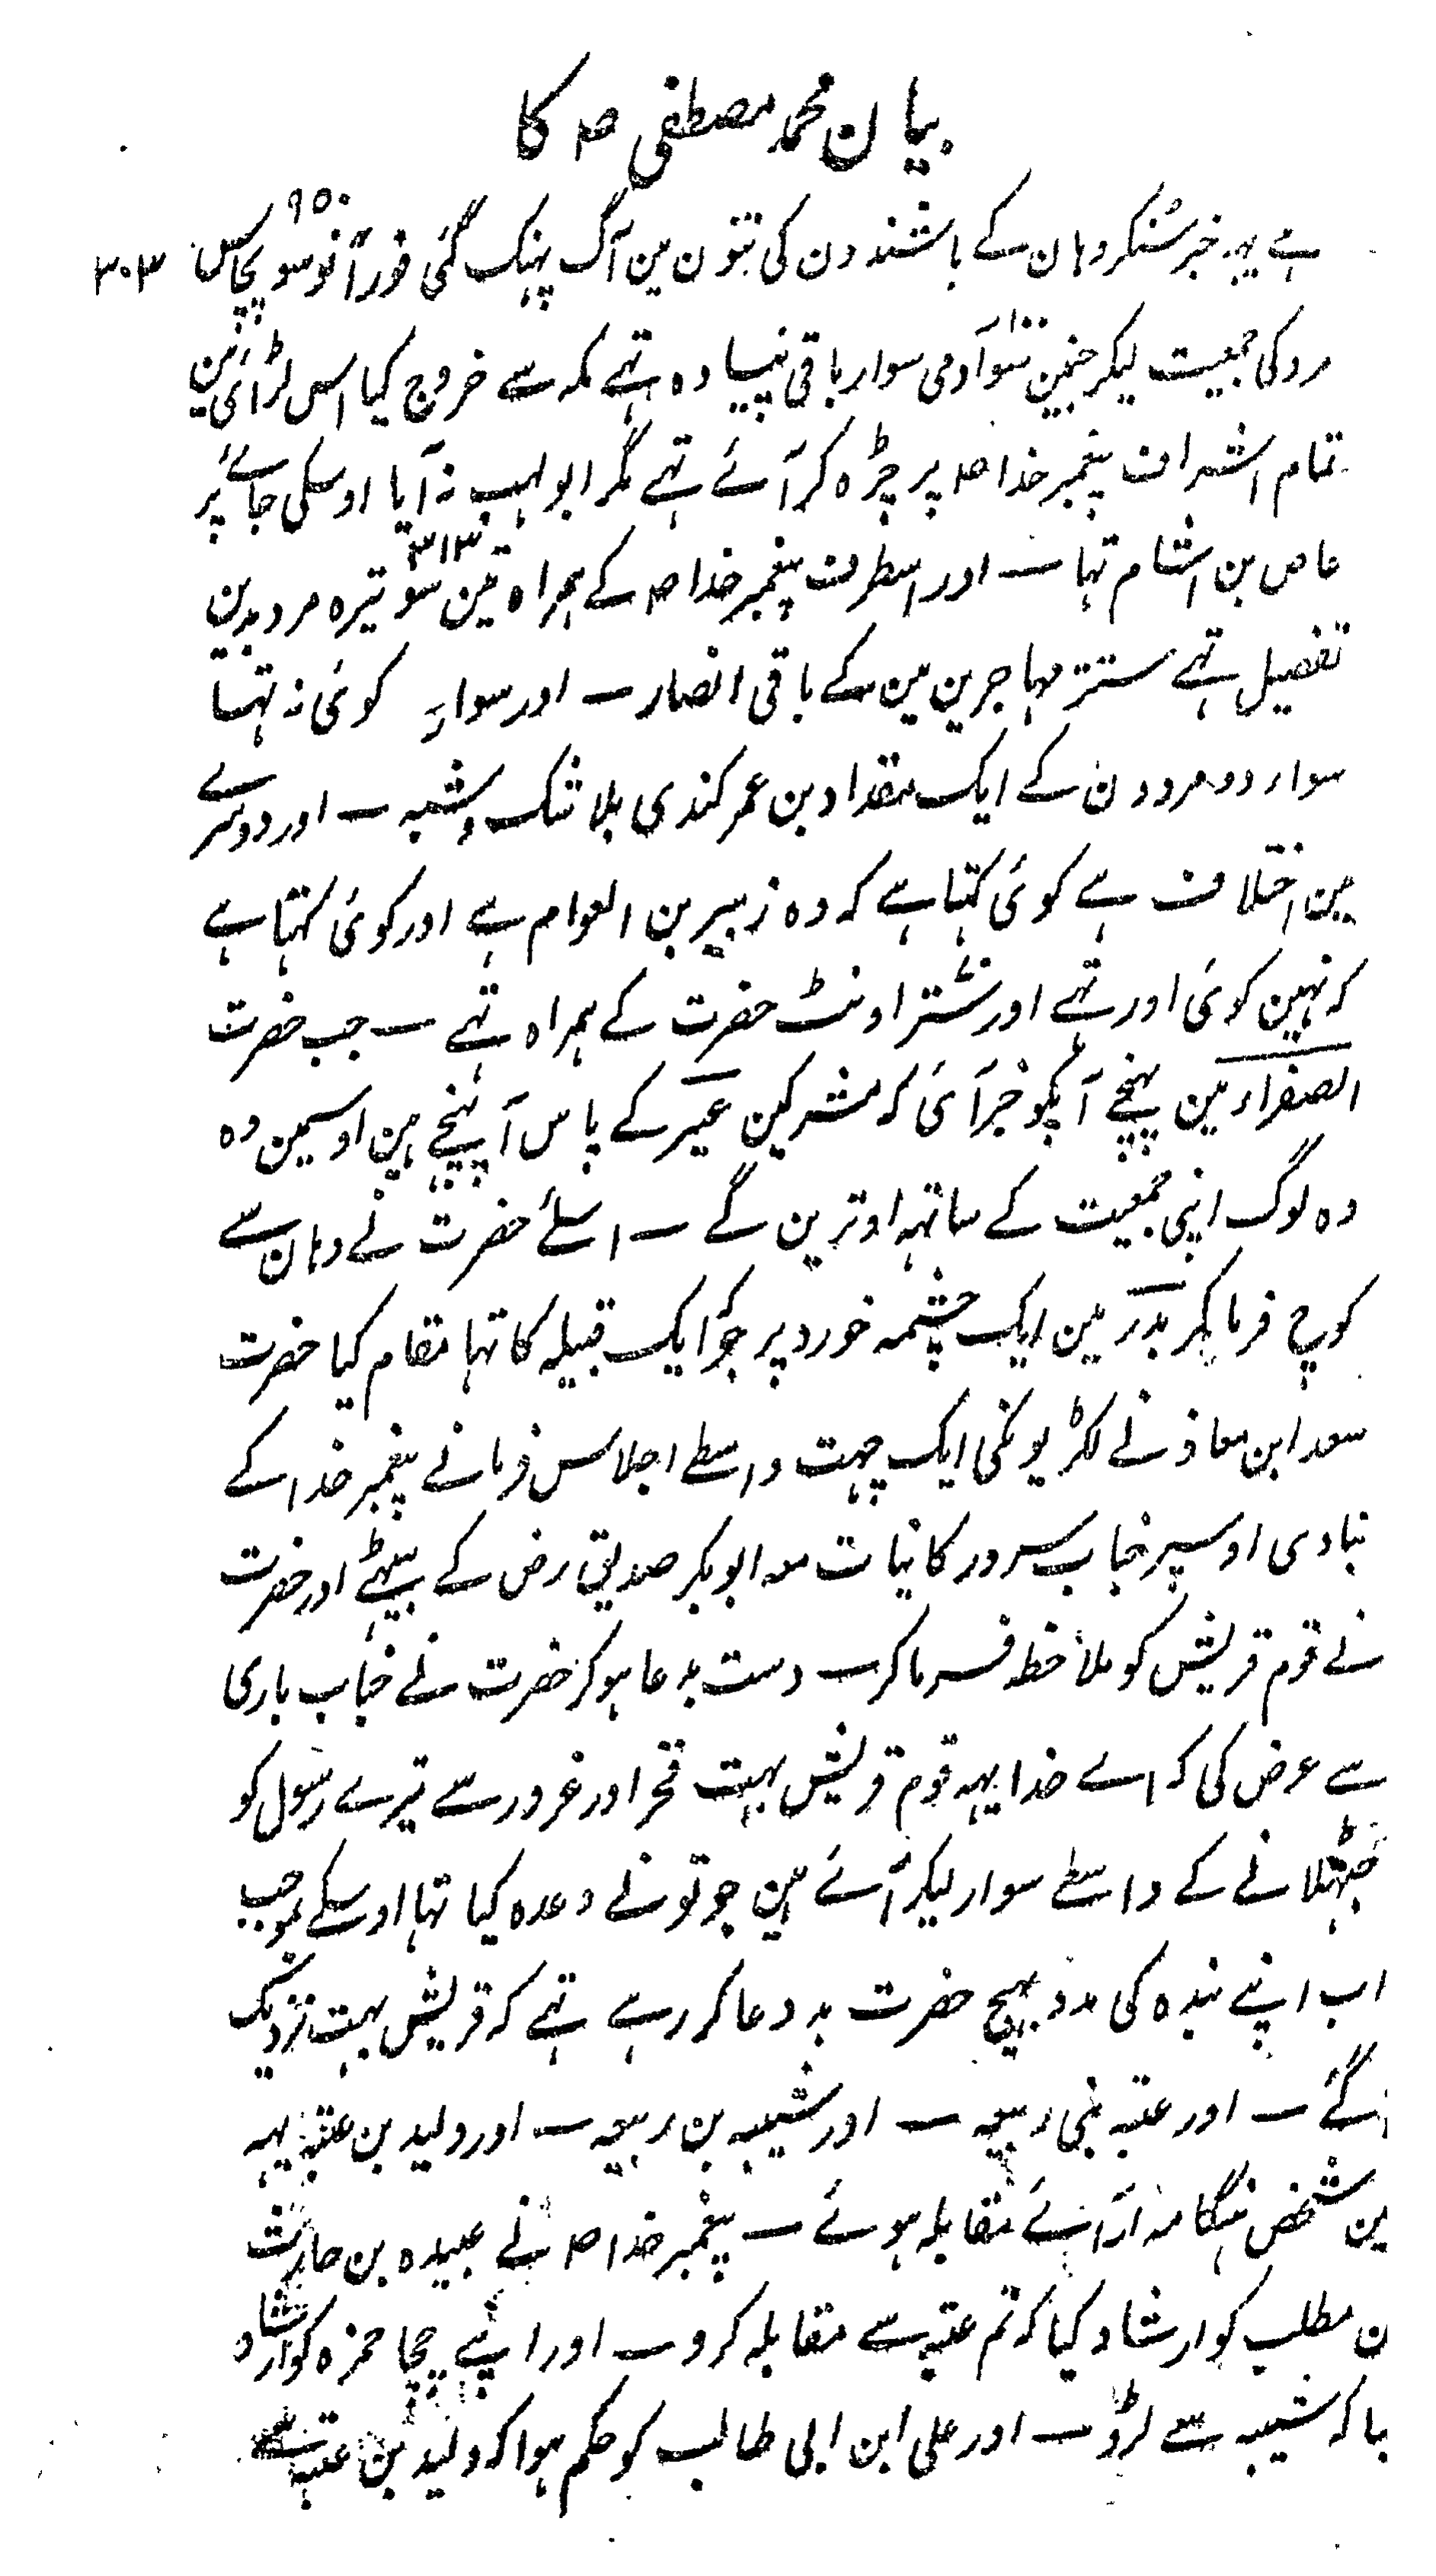 بیان محمد مصطفی ص کا
۹۵۰
ہے یہہ خبر سنکر وہان کے باشندون کی تنون مین آگ پہنک گئی فوراً نوسو پچاس ۳۰۳
مرد کی جمعیت لیکر جنمین سَو ۱۰۰ آدمی سوار باقی پیادہ تہے مکہ سے خروج کیا اس لڑائی مین
تمام اشراف پیغمبر خدا ص پر چڑہ کر آئے تہے مگر ابو لہب نہ آیا اوسکی جائے پر
عاص بن ہشام تہا ــ اور اسطرف پیغمبر خدا ص کے ہمراہ تین سو تیرہ ۳۱۳ مرد بدین
تفصیل تہے ستتر مہاجرین مین کے باقی انصار ــ اور سوار کوئی نہ تہا
سواء دو مردون کے ایک مقداد بن عمر کندی بلا شک و شبہ ــ اور دوسرے
مین اختلاف ہے کوئی کہتا ہے کہ وہ زبیر بن العوام ہے اور کوئی کہتا ہے
کہ نہین کوئی اور تہے اور ستر اونٹ حضرت کے ہمراہ تہے ــ جب حضرت
الصفراء مین پہنچے آپکو خبر آئی کہ مشرکین عیر کے پاس آ پہنچے ہین اوسمین وہ
وہ لوگ اپنی جمعیت کے ساتہہ اوترین گے ــ اسلئے حضرت نے وہان سے
کوچ فرماکر بدر مین ایک چشمہ خورد پر جو ایک قبیلہ کا تہا مقام کیا حضرت
سعد ابن معاذ نے لکڑیونکی ایک چہت واسطے اجلاس فرمانے پیغمبر خدا کے
بنادی اوسپر جناب سرور کائنات معہ ابو بکر صدیق رض کے بیٹہے اور حضرت
نے قوم قریش کو ملاحظہ فرماکر ــ دست بدعا ہوکر حضرت نے جناب باری
سے عرض کی کہ اے خدا یہہ قوم قریش بہت فخر اور غرور سے تیرے رسول کو
جہٹلانے کے واسطے سوار لیکر آئے ہین جو تو نے وعدہ کیا تہا اوسکے بموجب
اب اپنے بندہ کی مدد بہیج حضرت یہ دعا کر رہے تہے کہ قریش بہت نزدیک
گئے ــ اور عتبہ بنی ربیعہ ــ اور شیبہ بن ربیعہ ــ اور ولید بن عتبہ یہہ
ین شخص ہنگامہ آرائے مقابلہ ہوئے ــ پیغمبر خدا ص نے عبیدہ بن حارث
ن مطلب کو ارشاد کیا کہ تم عتبہ سے مقابلہ کرو ــ اور اپنے چچا حمزہ کو ارشاد
یا کہ شیبہ سے لڑو ــ اور علی ابن ابی طالب کو حکم ہوا کہ ولید بن عتبہ سے